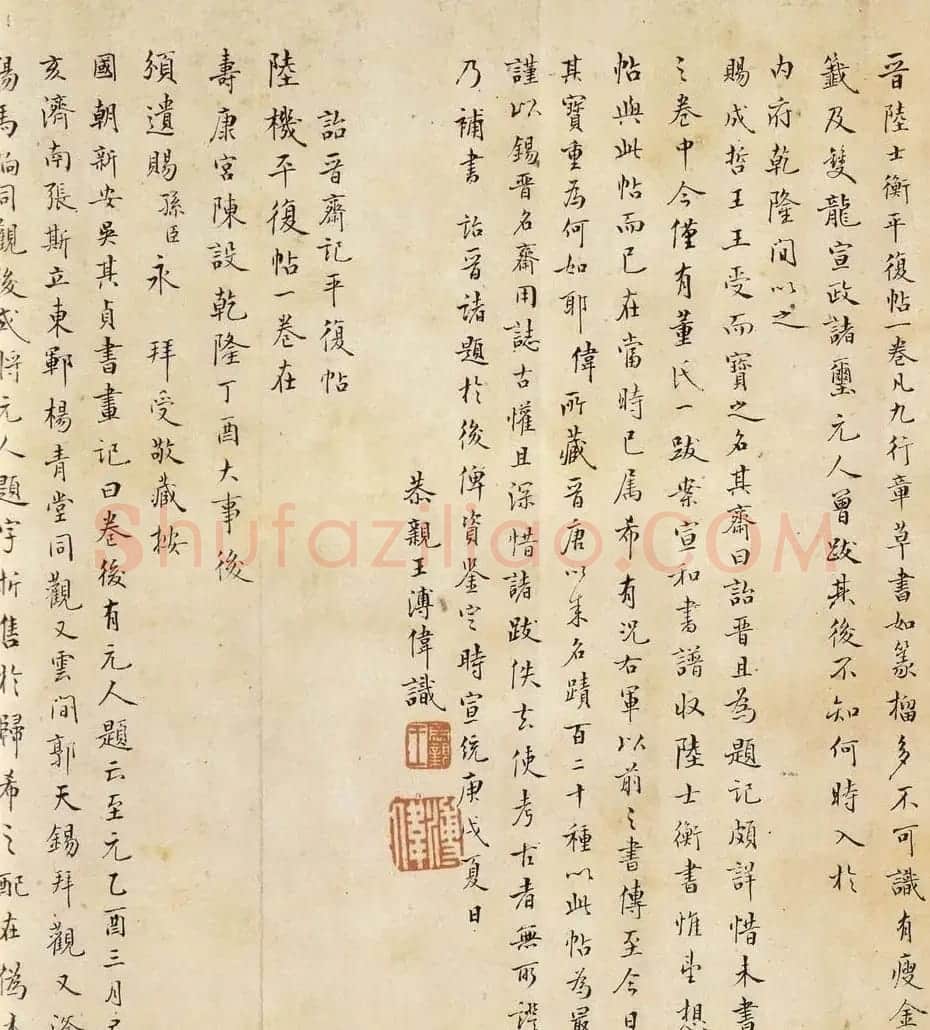 晉陸士衡平復帖一卷凡九行章草書如篆籀多不可識有瘦金
籤及雙龍宣政諸璽元人曾跋其後不知何時入於
內府乾隆間以之
賜成哲王王受而寶之名其齋曰詒晉且為題記頗詳惜未書
之卷中今僅有董氏一跋案宣和書譜收陸士衡書惟
帖與此帖而已在當時已属希有況右軍以前之書傳至今日
其寶重為何如耶 偉所藏晉唐以來名蹟百二十種以此帖為最
謹以錫晉名齋用誌古懽且深惜諸跋佚去使考古者無所證
乃補書 詒晉諸題於後俾資鉴定時宣統庚戌夏日
恭親王溥偉識
恭親王
溥偉
詒晉齋記平復帖
陸機平復帖一卷在
壽康宮陳設乾隆丁酉大事後
頒遺賜孫臣永 拜受敬藏按
國朝新安吳其貞書畫記曰卷後有元人題云至元乙酉三月
亥濟南張斯立東鄆楊青堂同觀又雲間郭天錫拜觀又滏
陽馬昫同觀後或將元人題字折售於歸希之配在偽
Shufaziliao.COM